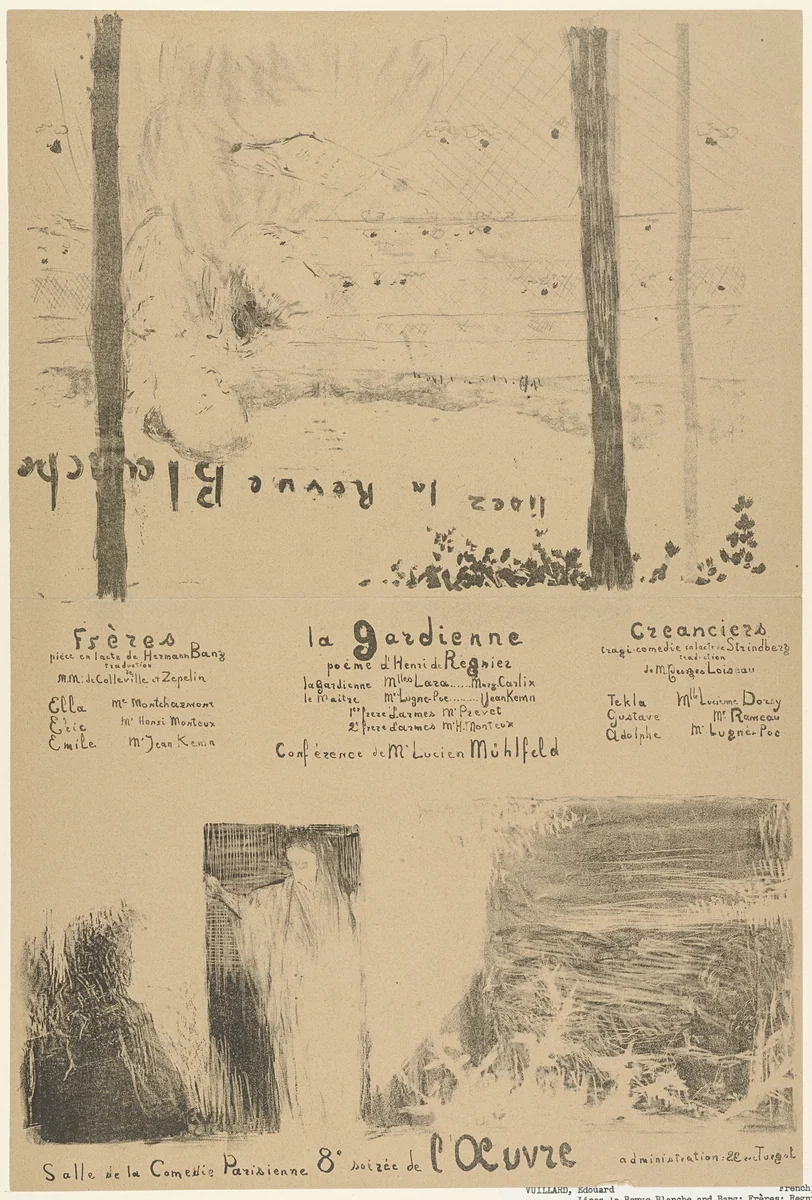 lisez la Revue Blanche
Frères
pièce en 1 acte de Hermann Bang
traduction
de
M.M. de Colleville et Zepelin
Ella Me Montcharmont
Eric Mr Hansi Monteux
Emile Mr Jean Kemm
la gardienne
poème d'Henri de Regnier
la gardienne Mlles Lara......Marg. Carlix
le maitre Mrs Lugne-Poe.........Jean Kemm
1er frere d'armes Mr Prevet
2e frere d'armes Mr H. Monteux
Conférence de Mr Lucien Mühlfeld
Creanciers
tragi-comedie en 1 acte de Strindberg
traduction
de M. Georges Loiseau
Tekla Mlle Lucienne Dorsy
Gustave Mr Rameau
Adolphe Mr Lugne-Poe
Salle de la Comedie Parisienne 8e soirée de l'Œuvre
administration: 22 rue Turgot
VUILLARD, Edouard French